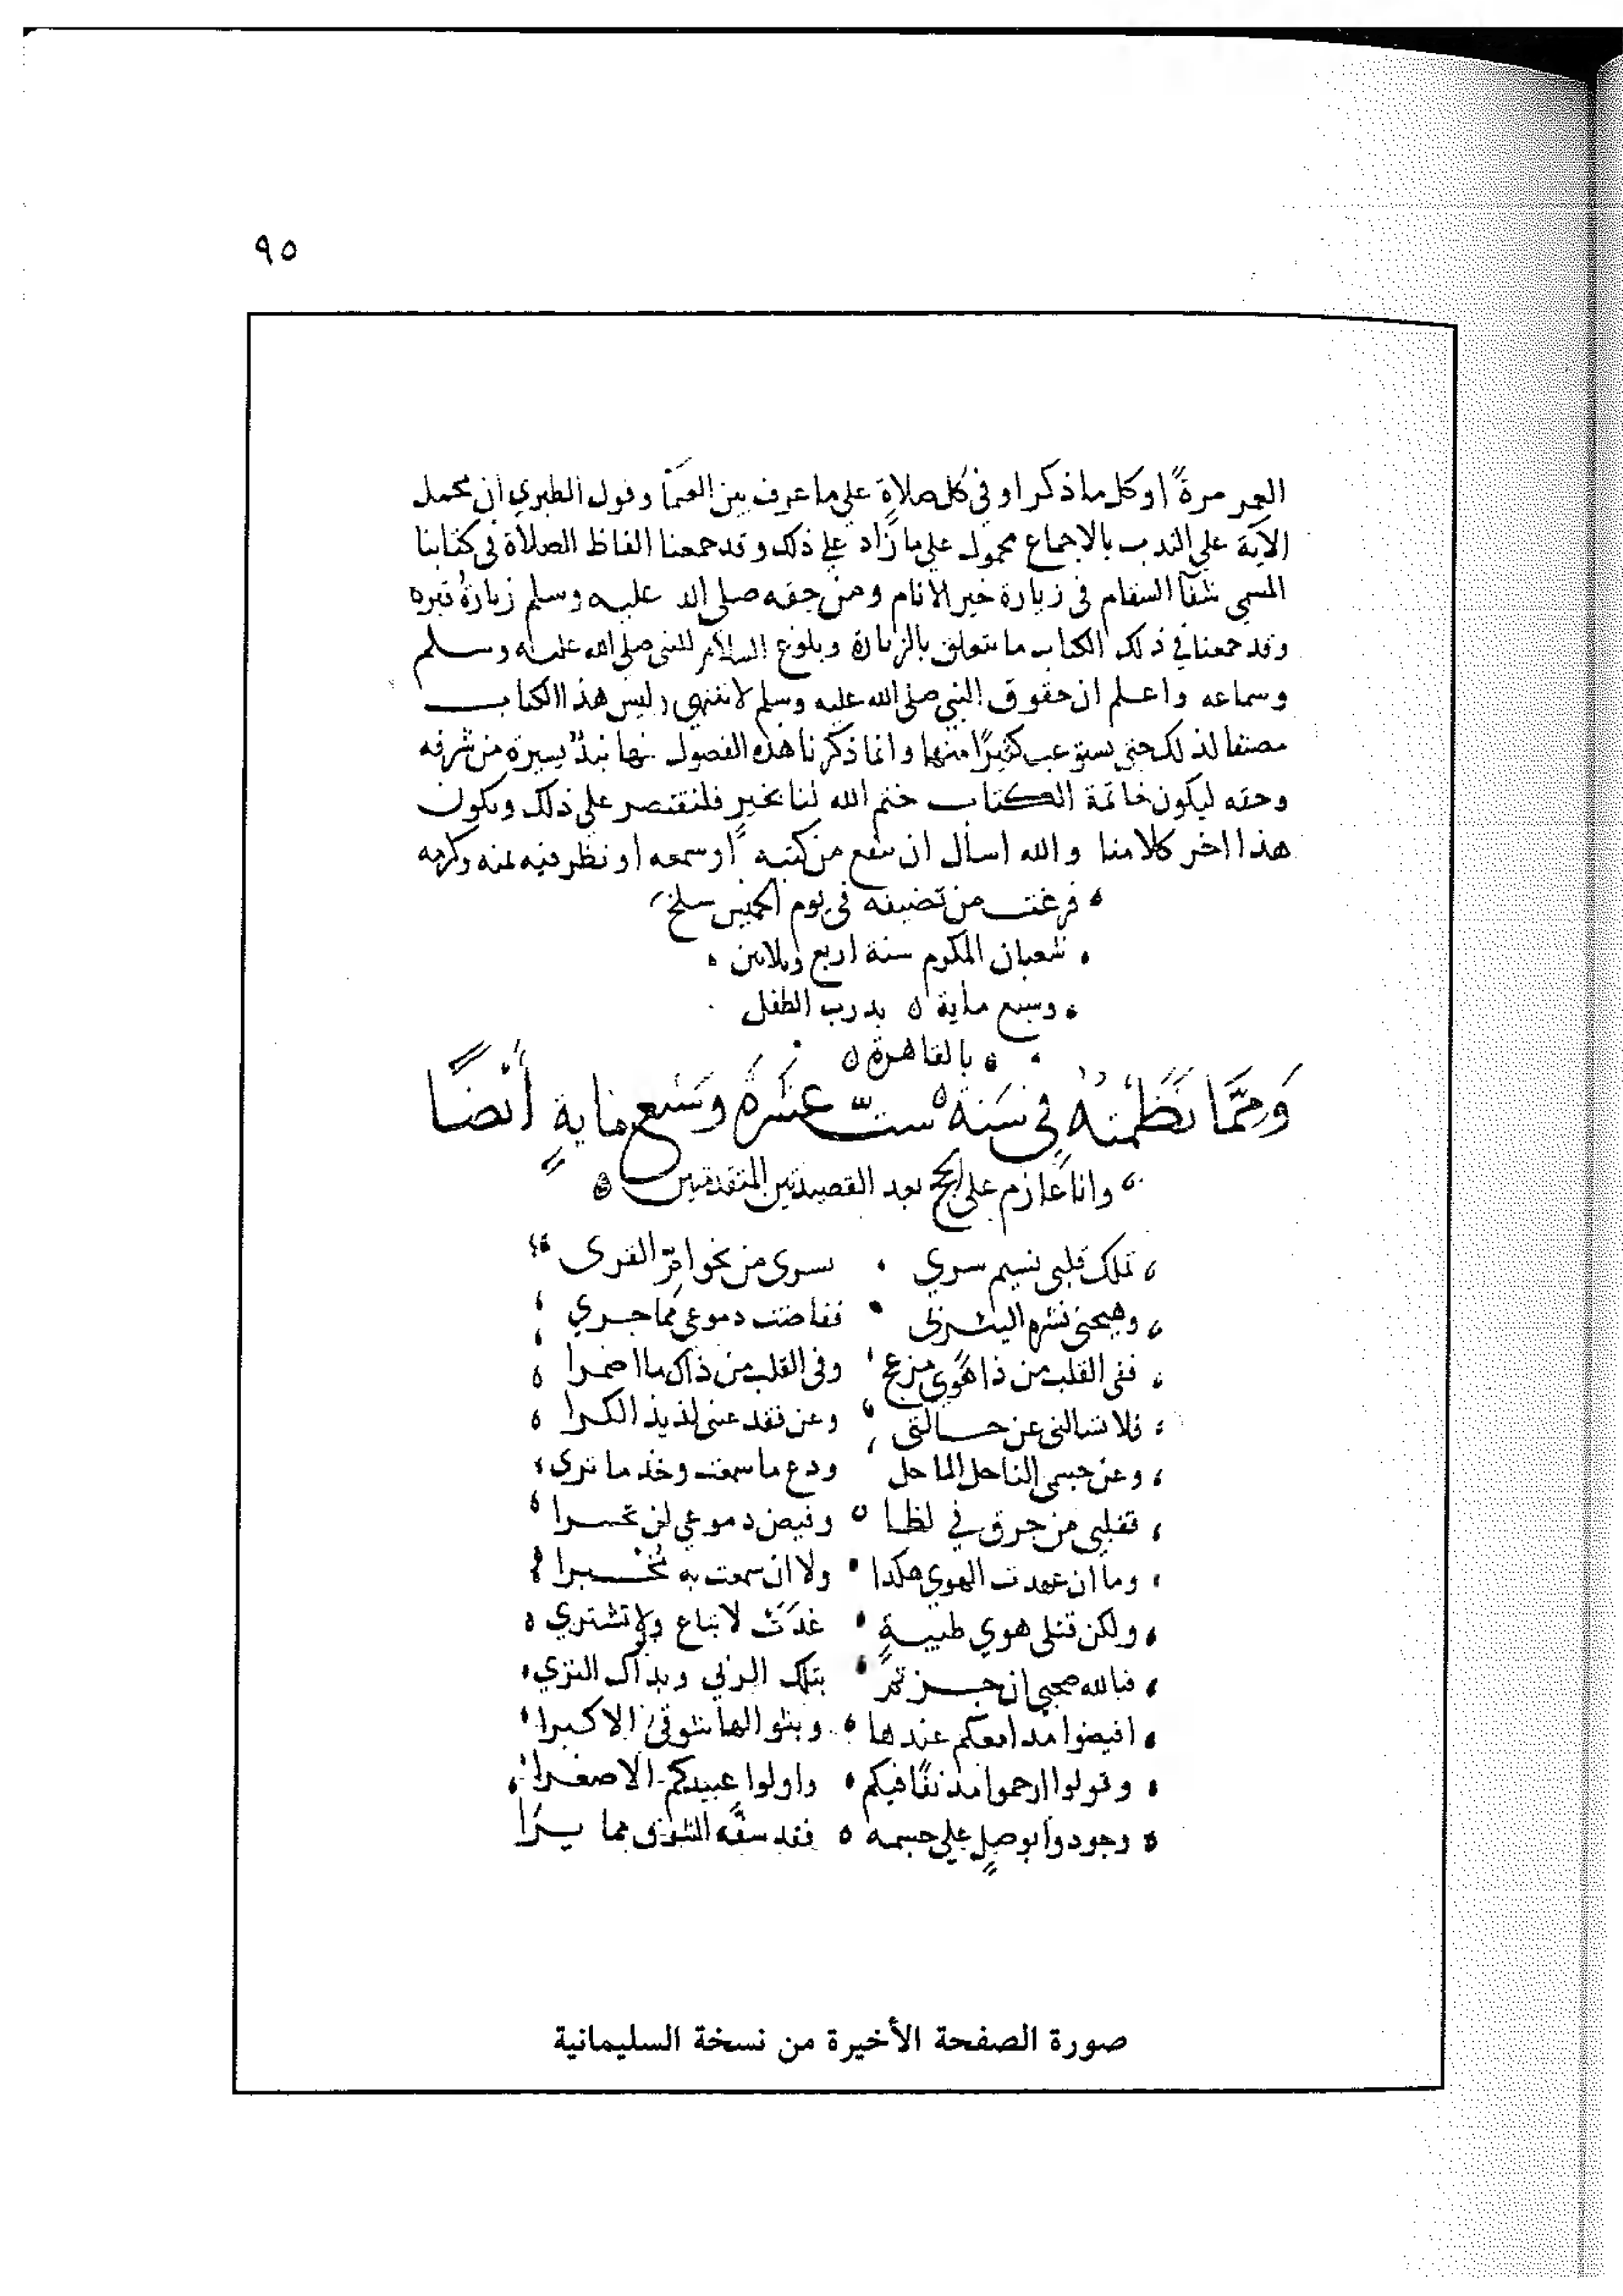 ٩٥
العمر مرةً او كل ما ذكر او في كل صلاةٍ علي ما عرف بين العلما وقول الطبري ان محمل
الآية علي الندب بالاجماع محمول علي ما زاد علي ذلك وقد جمعنا الفاظ الصلاة في كتابنا
المسمي شفآ السقام في زيارة خير الانام ومن حقه صلي الله عليه وسلم زيارة قبره
وقد جمعنا في ذلك الكتاب ما يتعلق بالزيارة وبلوغ السلام للنبي صلي الله عليه وسلم
وسماعه واعلم ان حقوق النبي صلي الله عليه وسلم لا تنتهي وليس هذا الكتاب
مصنفا لذلك حتي نستوعب كثيرًا منها وانما ذكرنا هذه الفصول نبذٌ يسيرة من شرفه
وحقه ليكون خاتمة الكتاب ختم الله لنا بخيرٍ فلنقتصر علي ذلك ويكون
هذا اخر كلامنا والله اسأل ان ينفع من كتبه او سمعه او نظر فيه بمنه وكرمه
فرغت من تصنيفه في يوم الخميس سلخ
شعبان المكرم سنة اربع وثلاثين
وسبع ماية بدرب الطفل
بالقاهرة
وَمِمَّا نَظَمْتُهُ فِي سَنَةِ سِتَّ عَشْرَةَ وَسَبْعِ مايةٍ أَيْضًا
وانا عازم علي الحج بعد القصيدتين المتقدمتين
تملك قلبي نسيم سري سري من نحو ام القرى
وهيجني نشره اليثربي ففاضت دموعي مما جري
ففي القلب من ذا هوًي مزعج وفي القلب من ذاك ما اضمرا
فلا تسالني عن حالتي وعن فقد عيني لذيذ الكرا
وعن جسمي الناحل الماحل ودع ما سمعت وخذ ما ترى
فقلبي من حرق في لظا وفيض دموعي لن يحسرا
وما ان عهدت الهوي هكذا ولا ان سمعت به مُخْبرا
ولكن قتلي هوي طيبةٍ غَدَتْ لا تباع ولا تشتري
فبالله صحبي ان جزتمُ بتلك الربي وبذاك الثري
افيضوا مدامعكم عندها وبثوا لها شوقي الاكبرا
وقولوا ارحموا مدنفًا فيكم واولوا عبيدكم الاصغرا
وجودوا بوصلٍ علي جسمه فقد شفَّه الشوق مما يَرَا
صورة الصفحة الأخيرة من نسخة السليمانية